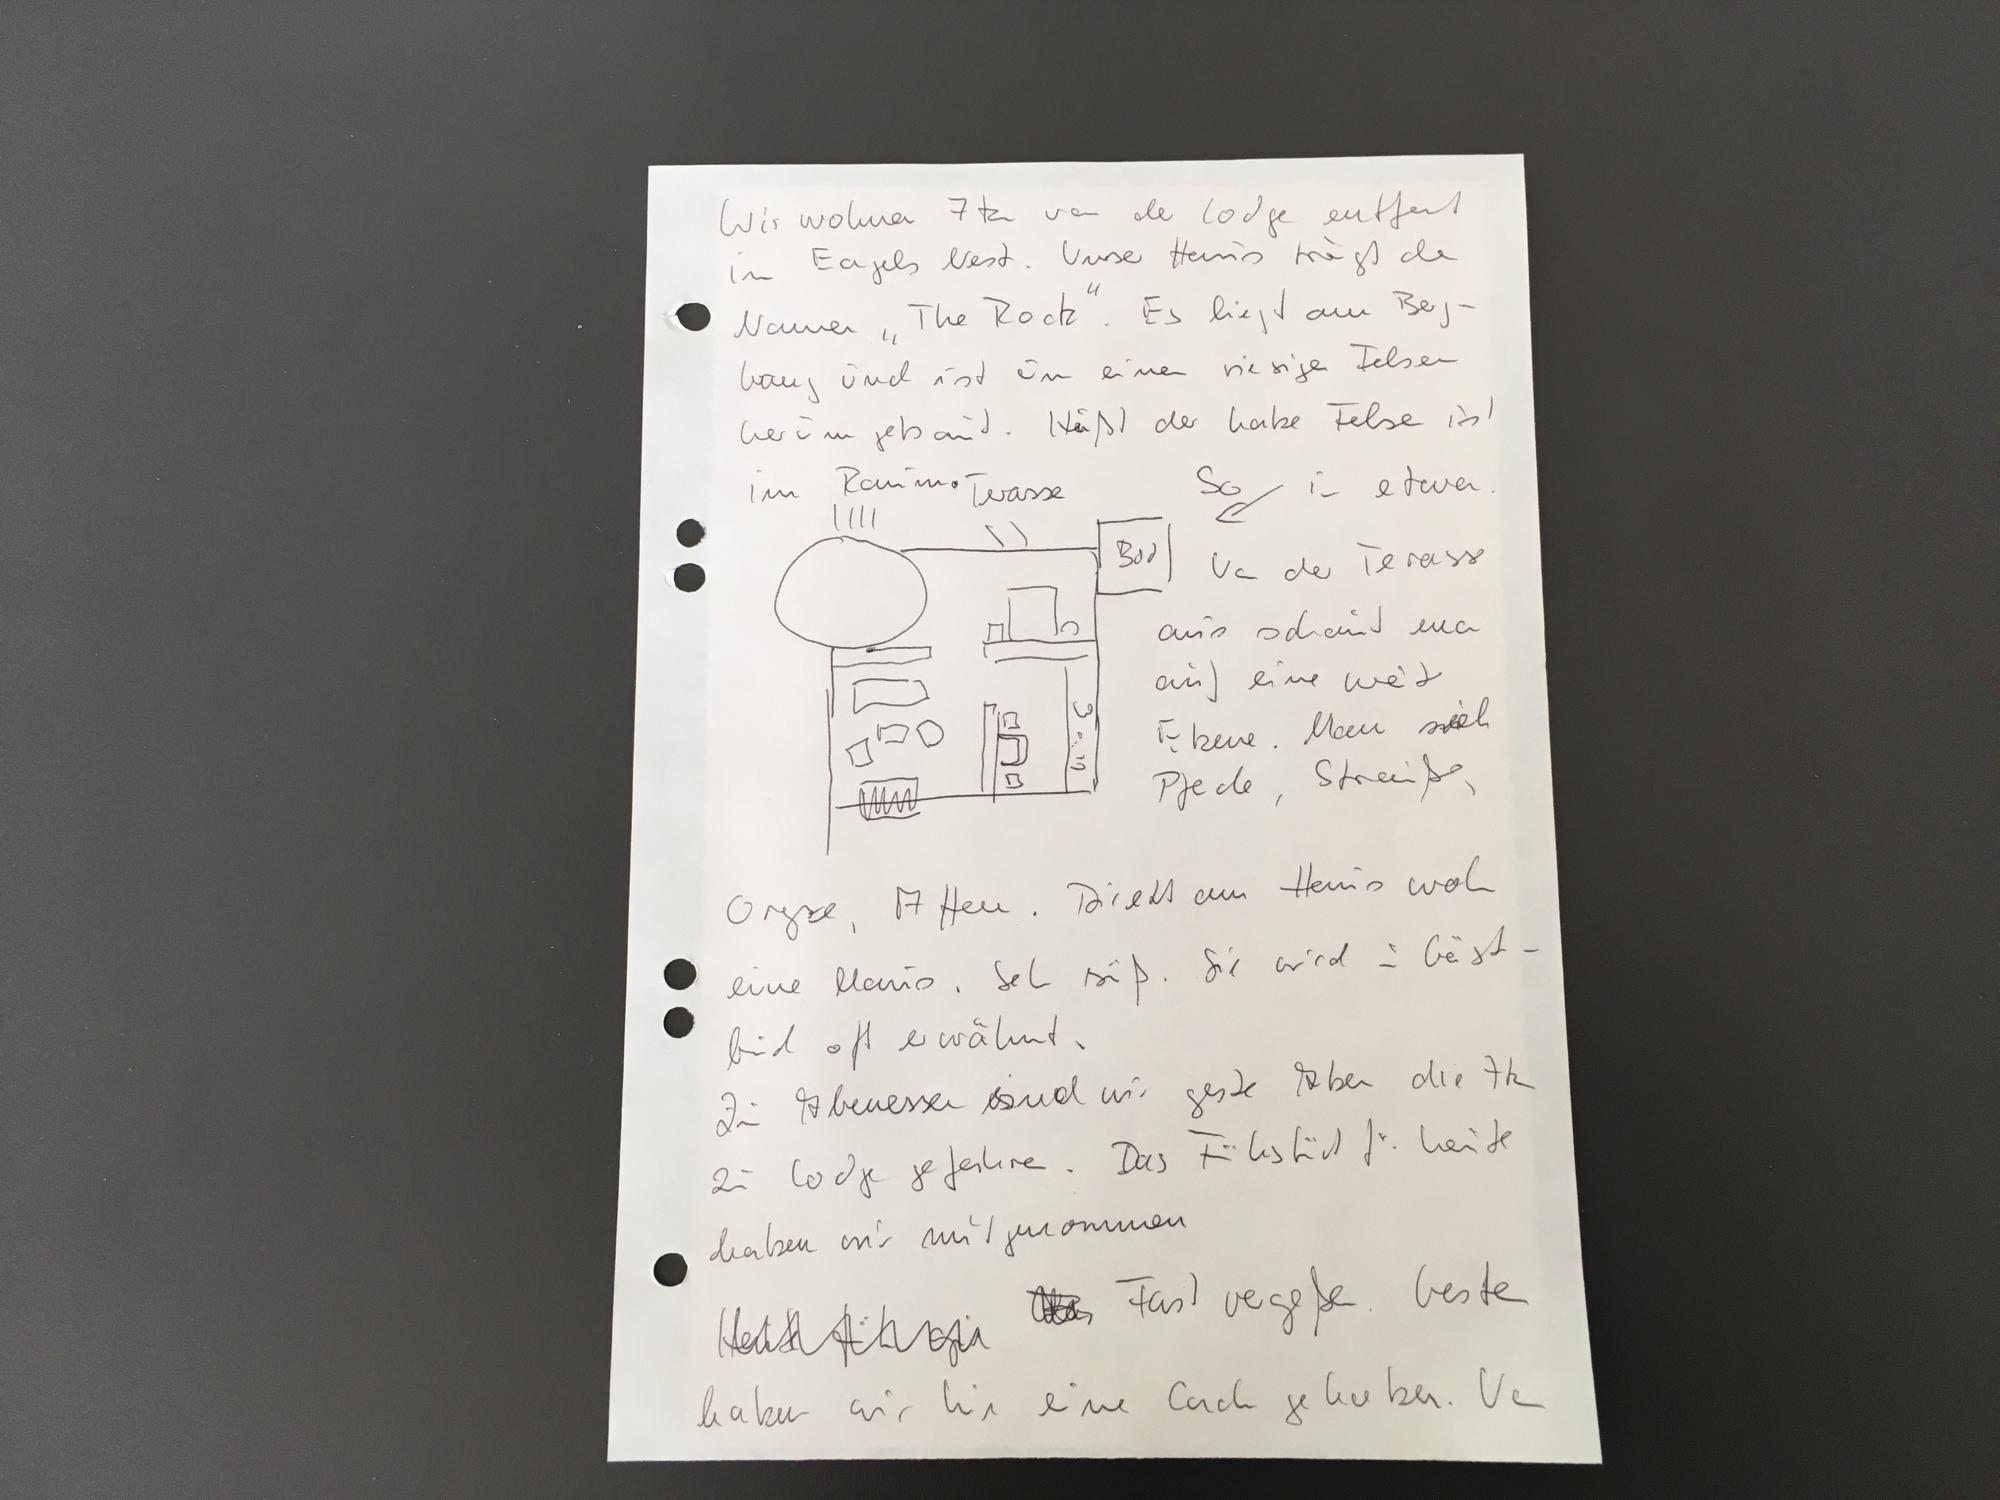 Wir wohnen 7km von der Lodge entfernt
im Eagels Nest. Unser Haus trägt den
Namen „The Rock“. Es liegt am Berg-
hang und ist um einen riesigen Felsen
herum gebaut. Heißt der halbe Felsen ist
im Raum. Terasse
So in etwa.
Bad
Von der Terasse
aus schaut man
auf eine weite
Ebene. Man sieht
Pferde, Strauße,
Oryxe, Affen. Direkt am Haus wohnt
eine Maus. Sehr süß. Sie wird im Gäste-
buch oft erwähnt.
Zum Abendessen sind wir gestern Abend die 7km
zur Lodge gefahren. Das Frühstück für heute
haben wir mitgenommen
Fast vergeßen. Gestern
haben wir hier eine Cach gehoben. Von